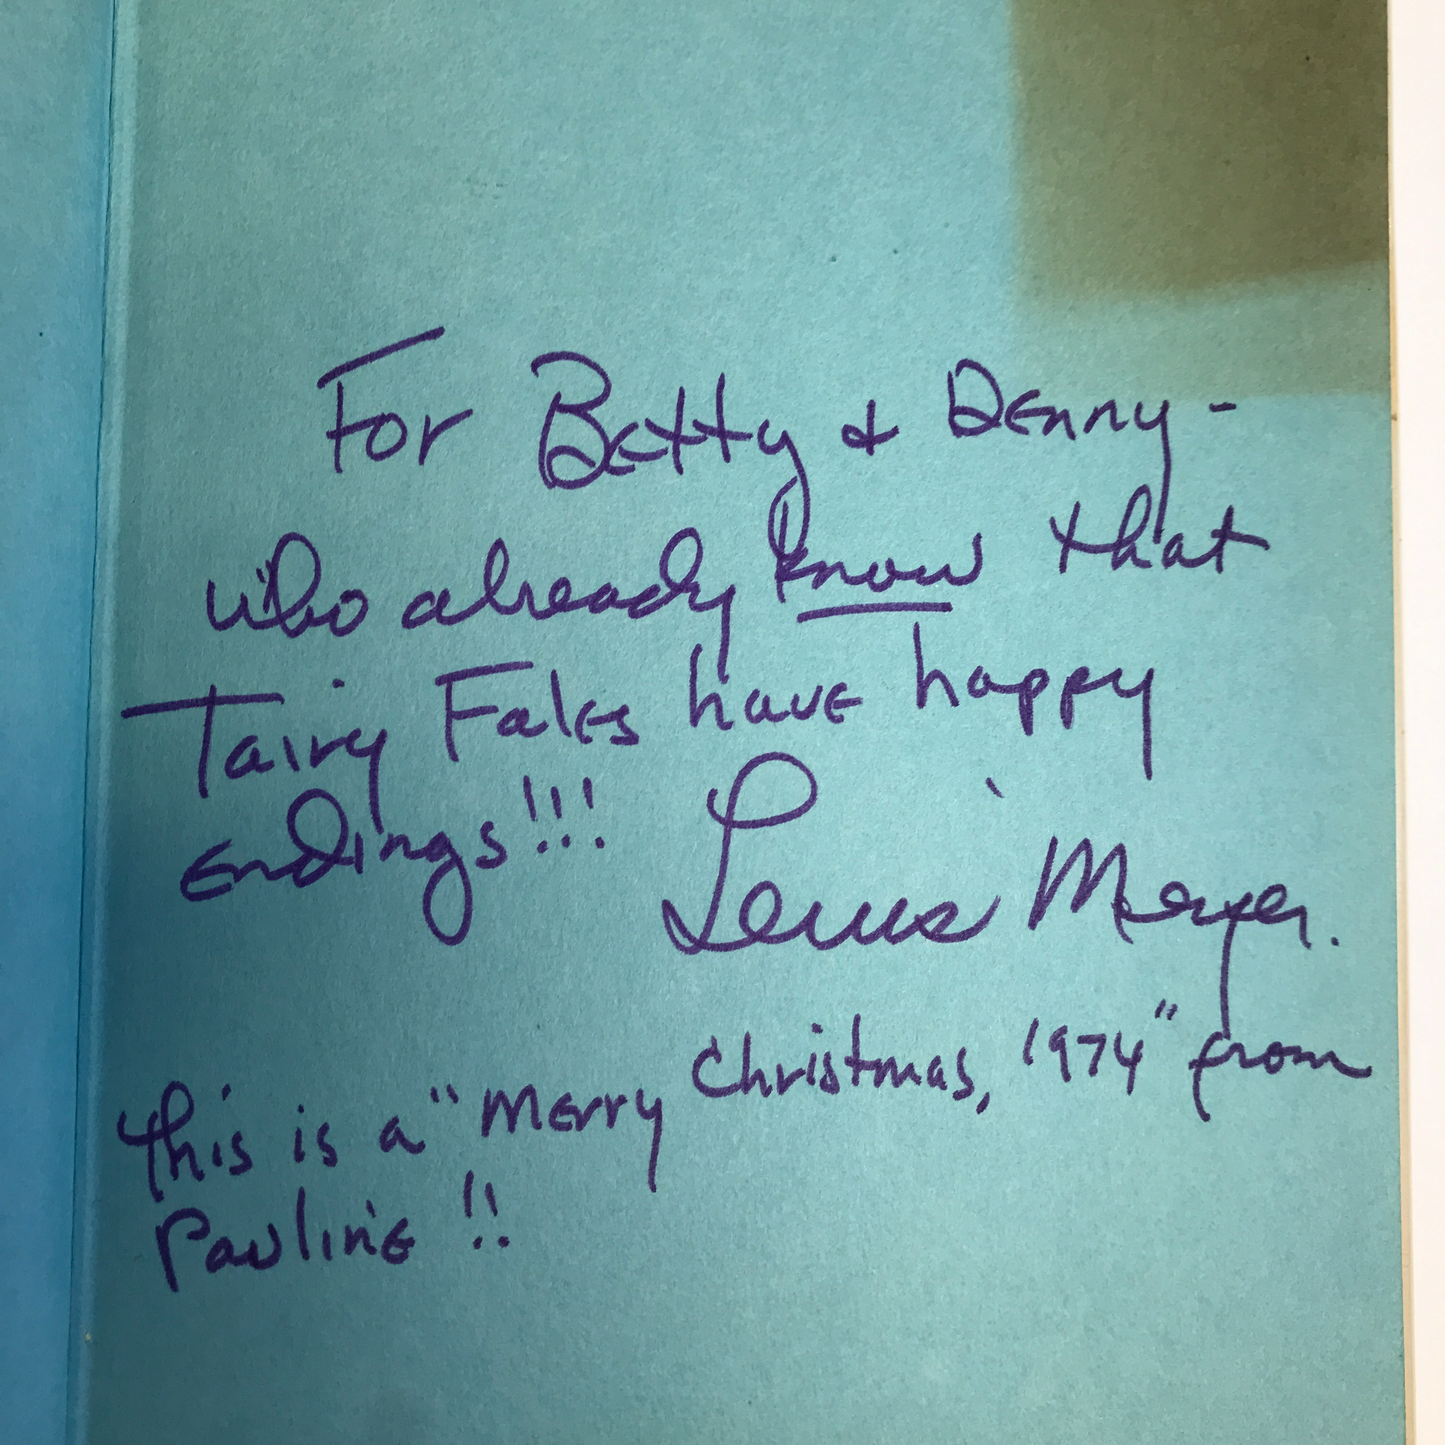 For Betty & Denny -
who already know that
Tairy Fales have happy
endings!!!
Lewis Meyer.
This is a "Merry Christmas, 1974" from
Pauline!!